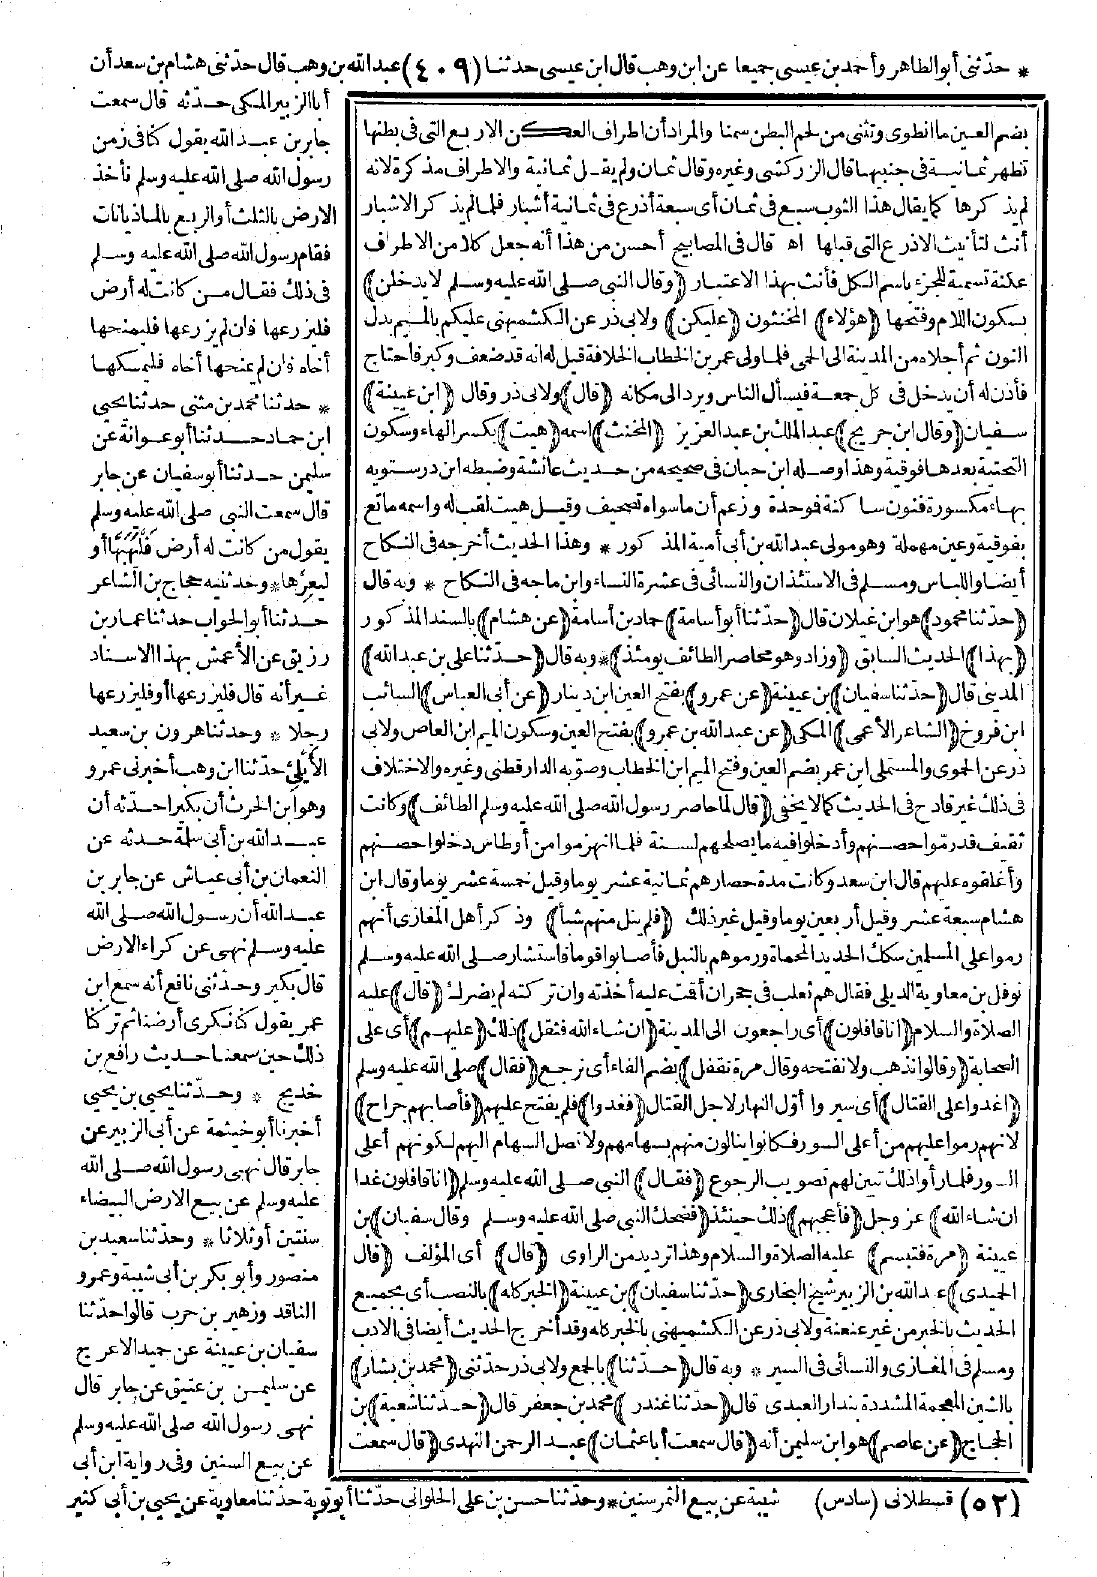 * حدّثنى أبو الطاهر وأحمد بن عيسى جميعا عن ابن وهب قال ابن عيسى حدثنا (٤٠٩) عبد الله بن وهب قال حدثنى هشام بن سعد أن
بضم العين ما انطوى وتثنى من لحم البطن سمنا والمراد أن اطراف العكن الاربع التى فى بطنها
تظهر ثمانية فى جنبيها قال الزركشى وغيره وقال ثمان ولم يقل ثمانية والاطراف مذكرة لانه
لم يذكرها كما يقال هذا الثوب سبع فى ثمان أى سبعة أذرع فى ثمانية أشبار فلما لم يذكر الاشبار
أنث لتأنيث الاذرع التى قبلها اه قال فى المصابيح أحسن من هذا أنه جعل كلا من الاطراف
عكنة تسمية للجزء باسم الكل فأنث بهذا الاعتبار (وقال النبى صلى الله عليه وسلم لا يدخلن)
بسكون اللام وفتحها (هؤلاء) المخنثون (عليكن) ولابى ذر عن الكشميهنى عليكم بالميم بدل
النون ثم أجلاه من المدينة الى الحمى فلما ولى عمر بن الخطاب الخلافة قيل له انه قد ضعف وكبر فاحتاج
فأذن له أن يدخل فى كل جمعة فيسأل الناس ويرد الى مكانه (قال) ولابى ذر وقال (ابن عيينة)
سفيان (وقال ابن جريج) عبد الملك بن عبد العزيز (المخنث) اسمه (هيت) بكسر الهاء وسكون
التحتية بعدها فوقية وهذا وصله ابن حبان فى صحيحه من حديث عائشة وضبطه ابن درستويه
بهاء مكسورة فنون ساكنة فوحدة وزعم أن ماسواه تصحيف وقيل هيت لقب له واسمه ماتع
بفوقية وعين مهملة وهو مولى عبد الله بن أبى أمية المذكور * وهذا الحديث أخرجه فى النكاح
أيضا واللباس ومسلم فى الاستئذان والنسائى فى عشرة النساء وابن ماجه فى النكاح * وبه قال
(حدّثنا محمود) هو ابن غيلان قال (حدّثنا أبو أسامة) حماد بن أسامة (عن هشام) بالسند المذكور
(بهذا) الحديث السابق (وزاد وهو محاصر الطائف يومئذ) * وبه قال (حدّثنا على بن عبد الله)
المدينى قال (حدّثنا سفيان) بن عيينة (عن عمرو) بفتح العين ابن دينار (عن أبى العباس) السائب
ابن فروخ (الشاعر الأعمى) المكى (عن عبد الله بن عمرو) بفتح العين وسكون الميم ابن العاص ولابى
ذر عن الحموى والمستملى ابن عمر بضم العين وفتح الميم ابن الخطاب وصوّبه الدارقطنى وغيره والاختلاف
فى ذلك غير قادح فى الحديث كما لا يخفى (قال لما حاصر رسول الله صلى الله عليه وسلم الطائف) وكانت
ثقيف قد رمّوا حصنهم وأدخلوا فيه ما يصلحهم لسنة فلما انهزموا من أوطاس دخلوا حصنهم
وأغلقوه عليهم قال ابن سعد وكانت مدة حصارهم ثمانية عشر يوما وقيل خمسة عشر يوما وقال ابن
هشام سبعة عشر وقيل أربعين يوما وقيل غير ذلك (فلم ينل منهم شيأ) وذكر أهل المغازى أنهم
رموا على المسلمين سكك الحديد المحماة ورموهم بالنبل فأصابوا قوما فاستشار صلى الله عليه وسلم
نوفل بن معاوية الديلى فقال هم ثعلب فى جحر ان أقت عليه أخذته وان تركته لم يضرك (قال) عليه
الصلاة والسلام (انا قافلون) أى راجعون الى المدينة (ان شاء الله فثقل) ذلك (عليهم) أى على
الصحابة (وقالوا نذهب ولا نفتحه وقال مرة نقفل) بضم الفاء أى نرجع (فقال) صلى الله عليه وسلم
(اغدوا على القتال) أى سيروا أوّل النهار لاجل القتال (فغدوا) فلم يفتح عليهم (فأصابهم جراح)
لانهم رموا عليهم من أعلى السور فكانوا ينالون منهم بسهامهم ولا تصل السهام اليهم لكونهم أعلى
السور فلما رأوا ذلك تبين لهم تصويب الرجوع (فقال) النبى صلى الله عليه وسلم (انا قافلون غدا
ان شاء الله) عز وجل (فأعجبهم) ذلك حينئذ (فضحك النبى صلى الله عليه وسلم وقال سفيان) بن
عيينة (مرة فتبسم) عليه الصلاة والسلام وهذا ترديد من الراوى (قال) أى المؤلف (قال
الحميدى) عبد الله بن الزبير شيخ البخارى (حدّثنا سفيان) بن عيينة (الخبر كله) بالنصب أى بجميع
الحديث بالخبر من غير عنعنة ولابى ذر عن الكشميهنى بالخبر كله وقد أخرج الحديث أيضا فى الادب
ومسلم فى المغازى والنسائى فى السير * وبه قال (حدّثنا) بالجمع ولابى ذر حدّثنى (محمد بن بشار)
بالشين المعجمة المشددة بندار العبدى قال (حدّثنا غندر) محمد بن جعفر قال (حدّثنا شعبة) بن
الحجاج (عن عاصم) هو ابن سليمن أنه (قال سمعت أبا عثمان) عبد الرحمن النهدى (قال سمعت
أبا الزبير المكى حدّثه قال سمعت
جابر بن عبد الله يقول كنا فى زمن
رسول الله صلى الله عليه وسلم نأخذ
الارض بالثلث أو الربع بالماذيانات
فقام رسول الله صلى الله عليه وسلم
فى ذلك فقال من كانت له أرض
فليزرعها فان لم يزرعها فليمنحها
أخاه فان لم يمنحها أخاه فليمسكها
* حدثنا محمد بن مثنى حدثنا يحيى
ابن حماد حدثنا أبو عوانة عن
سليمن حدثنا أبو سفيان عن جابر
قال سمعت النبى صلى الله عليه وسلم
يقول من كانت له أرض فليهبها أو
ليعرها * وحدثنيه حجاج بن الشاعر
حدثنا أبو الجواب حدثنا عمار بن
رزيق عن الأعمش بهذا الاسناد
غير أنه قال فليزرعها أو فليزرعها
رجلا * وحدثنا هرون بن سعيد
الأيلى حدثنا ابن وهب أخبرنى عمرو
وهو ابن الحرث أن بكيرا حدّثه أن
عبد الله بن أبى سلمة حدثه عن
النعمان بن أبى عياش عن جابر بن
عبد الله أن رسول الله صلى الله
عليه وسلم نهى عن كراء الارض
قال بكير وحدّثنى نافع أنه سمع ابن
عمر يقول كنا نكرى أرضنا ثم تركنا
ذلك حين سمعنا حديث رافع بن
خديج * وحدّثنا يحيى بن يحيى
أخبرنا أبو خيثمة عن أبى الزبير عن
جابر قال نهى رسول الله صلى الله
عليه وسلم عن بيع الارض البيضاء
سنتين أو ثلاثا * وحدّثنا سعيد بن
منصور وأبو بكر بن أبى شيبة وعمرو
الناقد وزهير بن حرب قالوا حدّثنا
سفيان بن عيينة عن حميد الاعرج
عن سليمن بن عتيق عن جابر قال
نهى رسول الله صلى الله عليه وسلم
عن بيع السنين وفى رواية ابن أبى
(٥٢) قسطلانى (سادس) شيبة عن بيع الثمر سنين * وحدّثنا حسن بن على الحلوانى حدّثنا أبو توبة حدّثنا معاوية عن يحيى بن أبى كثير